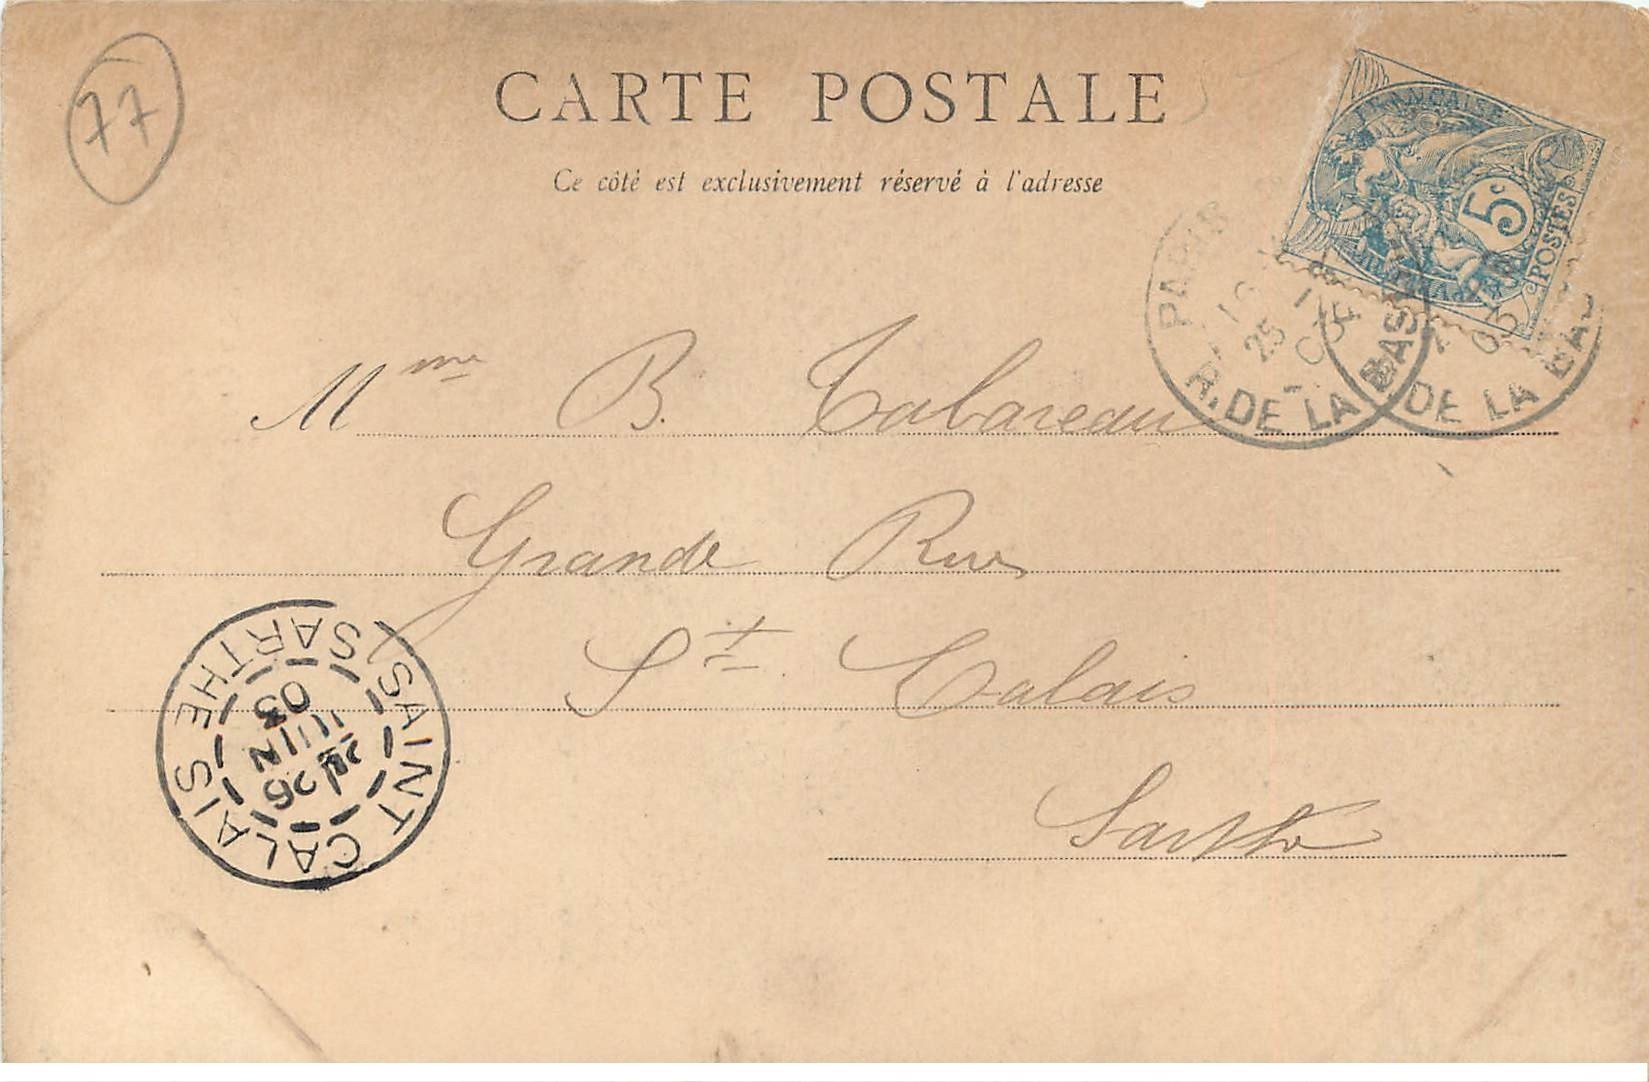 77
CARTE POSTALE
Ce côté est exclusivement réservé à l'adresse
FRANÇAISE
5c
POSTES
PARIS
25
R. DE LA BAS
03
DE LA BA
Mme B. Tabareau
Grande Rue
St Calais
Sarthe
SAINT CALAIS
SARTHE
26
JUIN
03